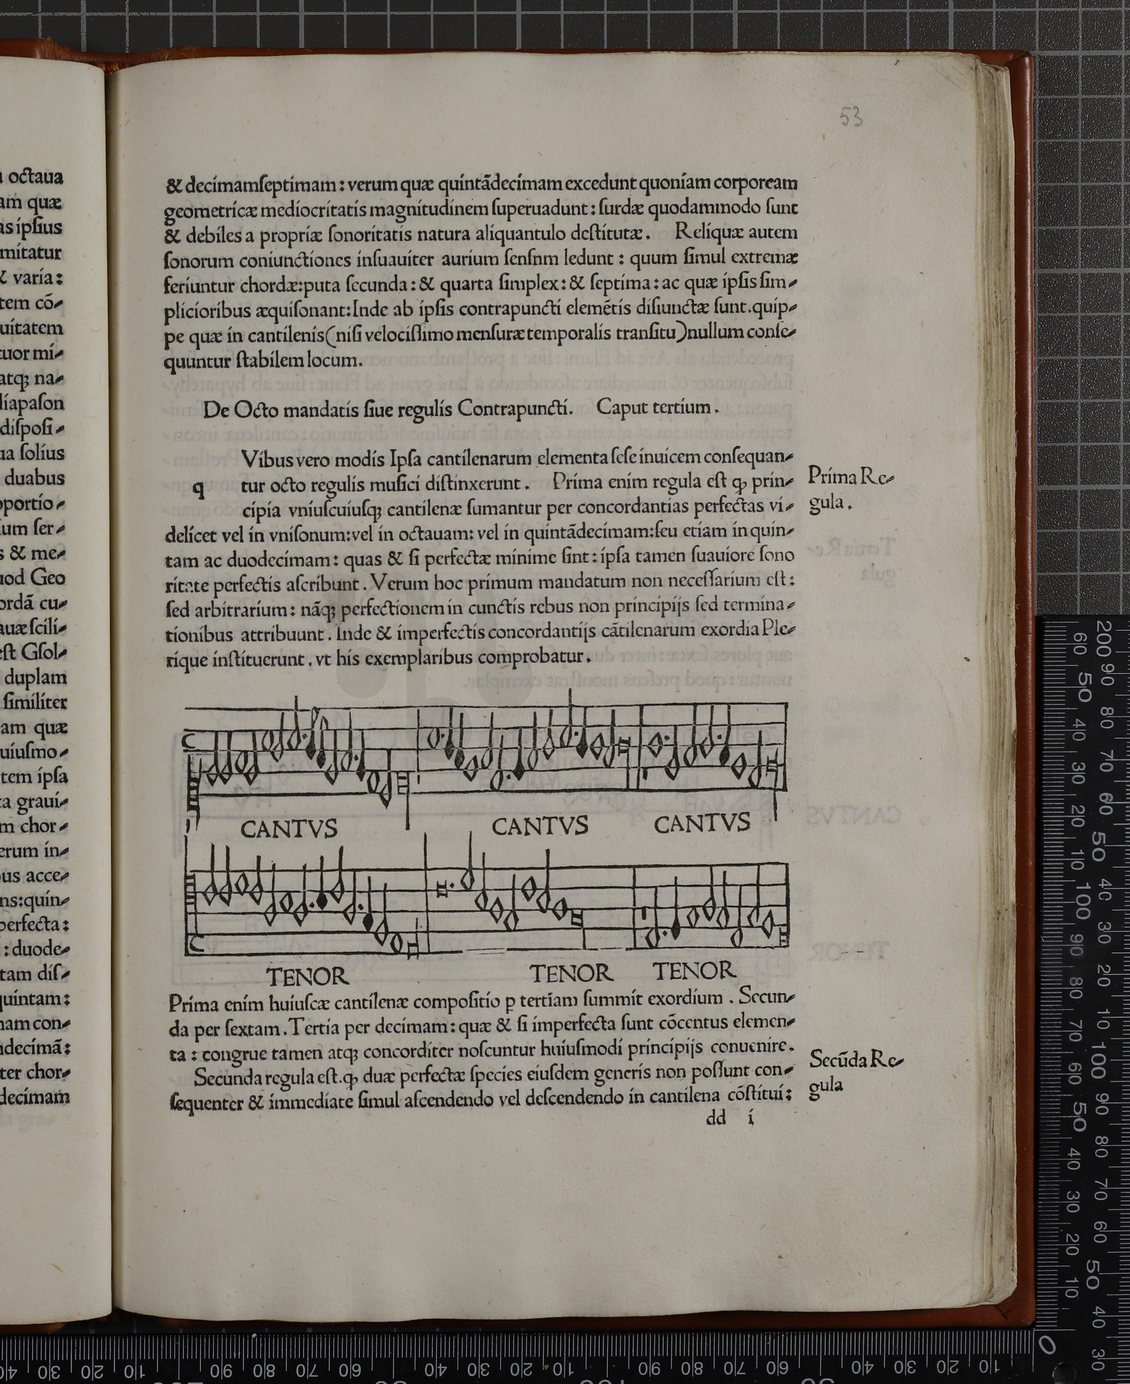 53
& decimamſeptimam : verum quæ quintãdecimam excedunt quoniam corpoream
geometricæ mediocritatis magnitudinem ſuperuadunt : ſurdæ quodammodo ſunt
& debiles a propriæ ſonoritatis natura aliquantulo deſtitutæ . Reliquæ autem
ſonorum coniunctiones inſuauiter aurium ſenſnm ledunt : quum ſimul extremæ
feriuntur chordæ:puta ſecunda : & quarta ſimplex : & ſeptima : ac quæ ipſis ſim⸗
plicioribus æquiſonant:Inde ab ipſis contrapuncti elemētis diſiunctæ ſunt.quip⸗
pe quæ in cantilenis(niſi velociſſimo menſuræ temporalis tranſitu)nullum conſe⸗
quuntur ſtabilem locum.
De Octo mandatis ſiue regulis Contrapuncti. Caput tertium.
q
Vibus vero modis Ipſa cantilenarum elementa ſeſe inuicem conſequan⸗
tur octo regulis muſici diſtinxerunt . Prima enim regula eſt ꝙ prin⸗
Prima Re⸗
cipia vniuſcuiuſqꝫ cantilenæ ſumantur per concordantias perfectas vi⸗
gula.
delicet vel in vniſonum:vel in octauam: vel in quintãdecimam:ſeu etiam in quin⸗
tam ac duodecimam : quas & ſi perfectæ minime ſint : ipſa tamen ſuauiore ſono
ritate perfectis aſcribunt . Verum hoc primum mandatum non neceſſarium eſt :
ſed arbitrarium : nãqꝫ perfectionem in cunctis rebus non principijs ſed termina⸗
tionibus attribuunt . Inde & imperfectis concordantijs cãtilenarum exordia Ple⸗
rique inſtituerunt . vt his exemplaribus comprobatur .
CANTVS CANTVS CANTVS
TENOR TENOR TENOR
Prima enim huiuſcæ cantilenæ compoſitio ꝑ tertiam ſummit exordium . Secun⸗
da per ſextam . Tertia per decimam : quæ & ſi imperfecta ſunt cõcentus elemen⸗
ta : congrue tamen atqꝫ concorditer noſcuntur huiuſmodi principijs conuenire.
Secunda regula eſt.ꝙ duæ perfectæ ſpecies eiuſdem generis non poſſunt con⸗
Secũda Re⸗
ſequenter & immediate ſimul aſcendendo vel deſcendendo in cantilena cõſtitui :
gula
dd i